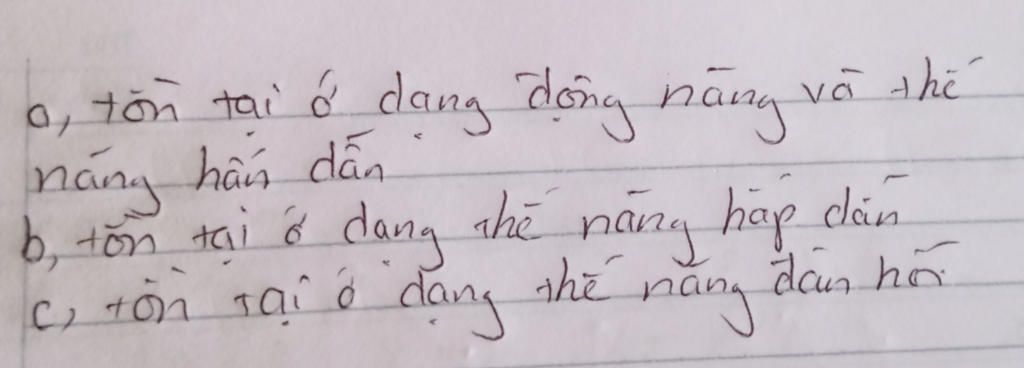 a, tồn tại ở dạng động năng và thế
năng hấn dẫn
b, tồn tại ở dạng thế năng hấp dẫn
c, tồn tại ở dạng thế năng đàn hồi